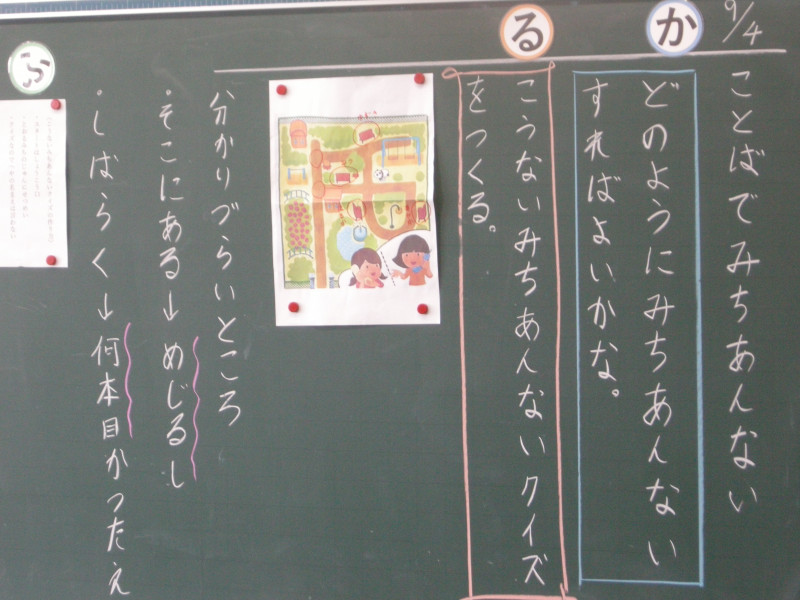 9/4
ことばでみちあんない
か
どのようにみちあんない
すればよいかな。
る
こうないみちあんないクイズ
をつくる。
分かりづらいところ
・そこにある→めじるし
・しばらく→何本目かつたえ
ふ